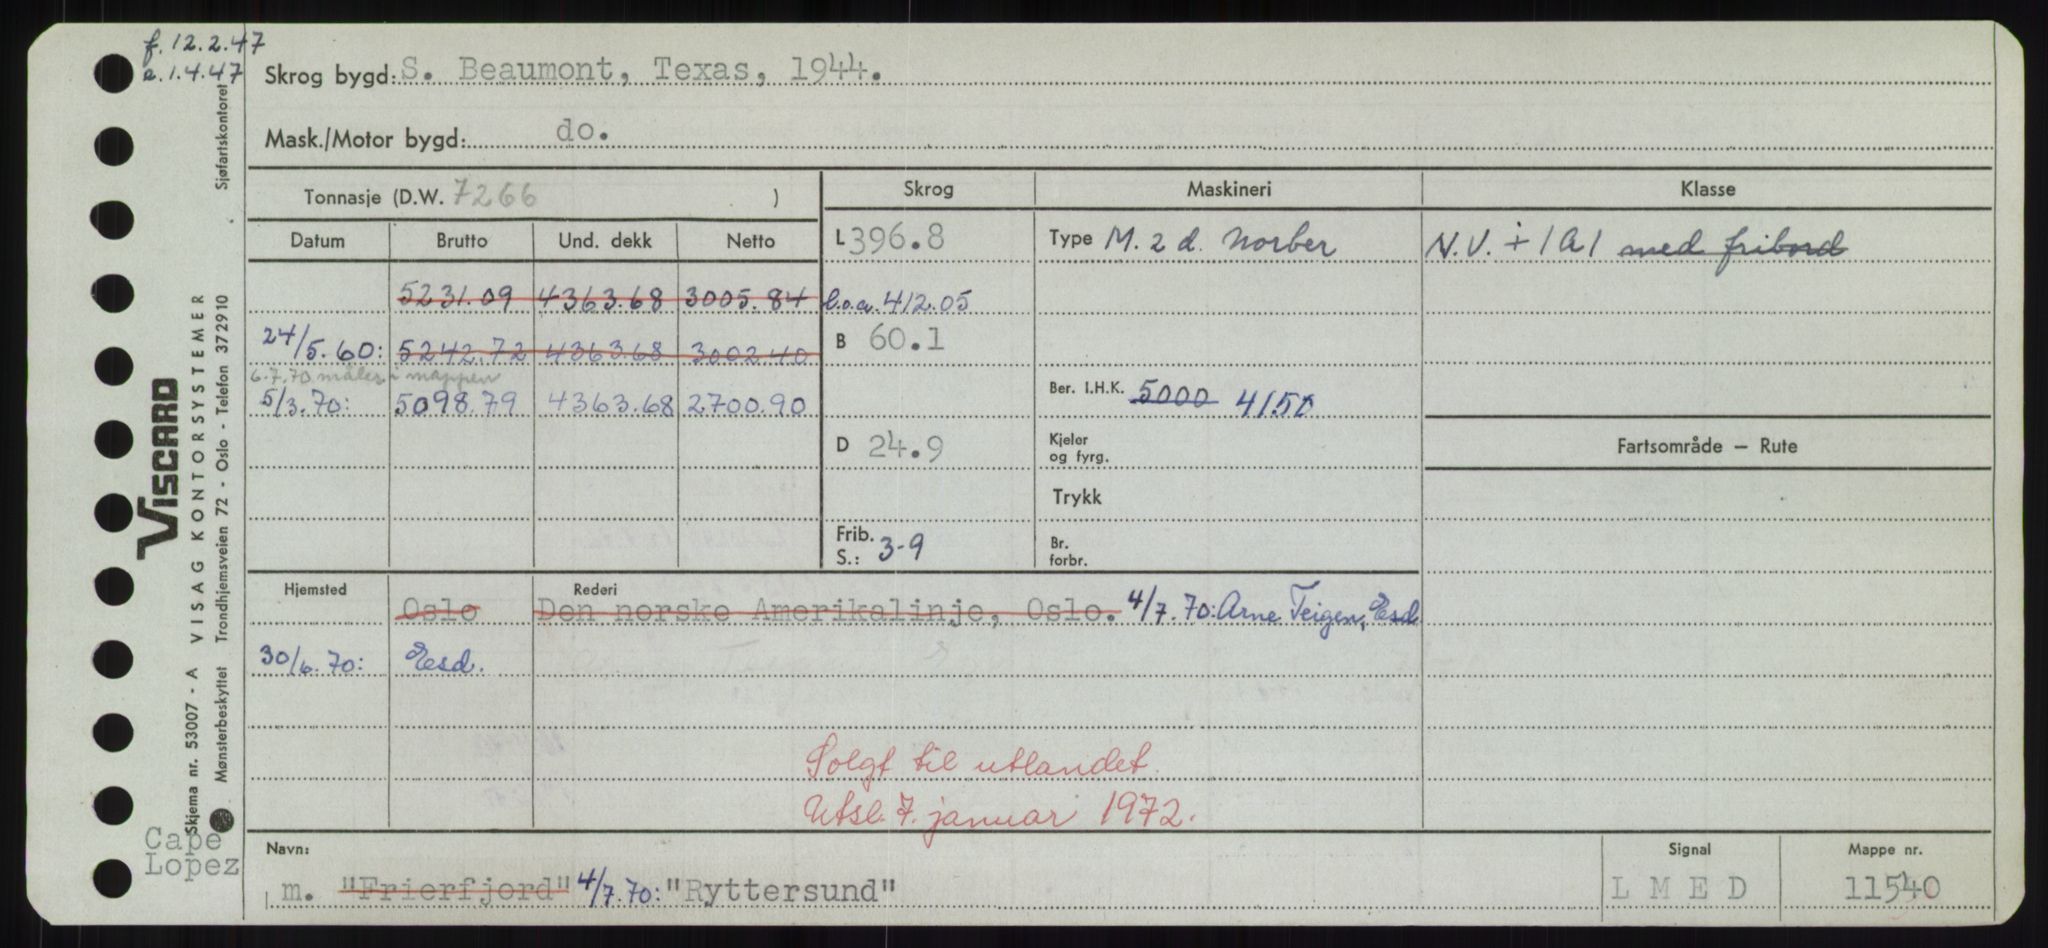 f. 12.2.47
a. 1.4.47
Skrog bygd: S. Beaumont, Texas, 1944.
Mask./Motor bygd: do.
Tonnasje (D.W. 7266 )
Skrog Maskineri Klasse
Datum Brutto Und. dekk Netto
L 396.8 Type M. 2 d. Norber N.V. + 1A1 med fribord
5231.09 4363.68 3005.84 l.o.a. 412.05
24/5.60: 5242.72 4363.68 3002.40 B 60.1
6.7.70 måler i mappen
5/3.70: 5098.79 4363.68 2700.90
Ber. I.H.K. 5000 4150
D 24.9 Kjeler og fyrg. Fartsområde — Rute
Trykk
Frib. S.: 3-9 Br. forbr.
Hjemsted Rederi
Oslo Den norske Amerikalinje, Oslo. 4/7.70: Arne Teigen, Esd
30/6.70: Esd.
Solgt til utlandet.
Utsl. 7. januar 1972.
Cape Lopez
Navn: Signal Mappe nr.
m. "Frierfjord" 4/7.70: "Ryttersund" L M E D 11540
VISCARD
Skjema nr. 53007 - A VISAG KONTORSYSTEMER
Mønsterbeskyttet Trondhjemsveien 72 - Oslo - Telefon 372910 Sjøfartskontoret